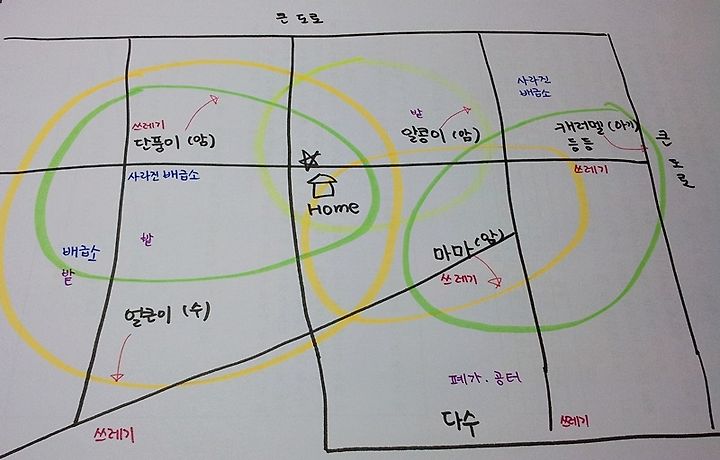 큰 도로
사라진
배급소
쓰레기
단풍이 (암)
밭
알콩이 (암)
캐러멜 (아기)
등등
큰 도로
사라진 배급소
쓰레기
Home
배급소
밭
밭
마마 (암)
쓰레기
얼큰이 (수)
폐가. 공터
쓰레기
다수
쓰레기